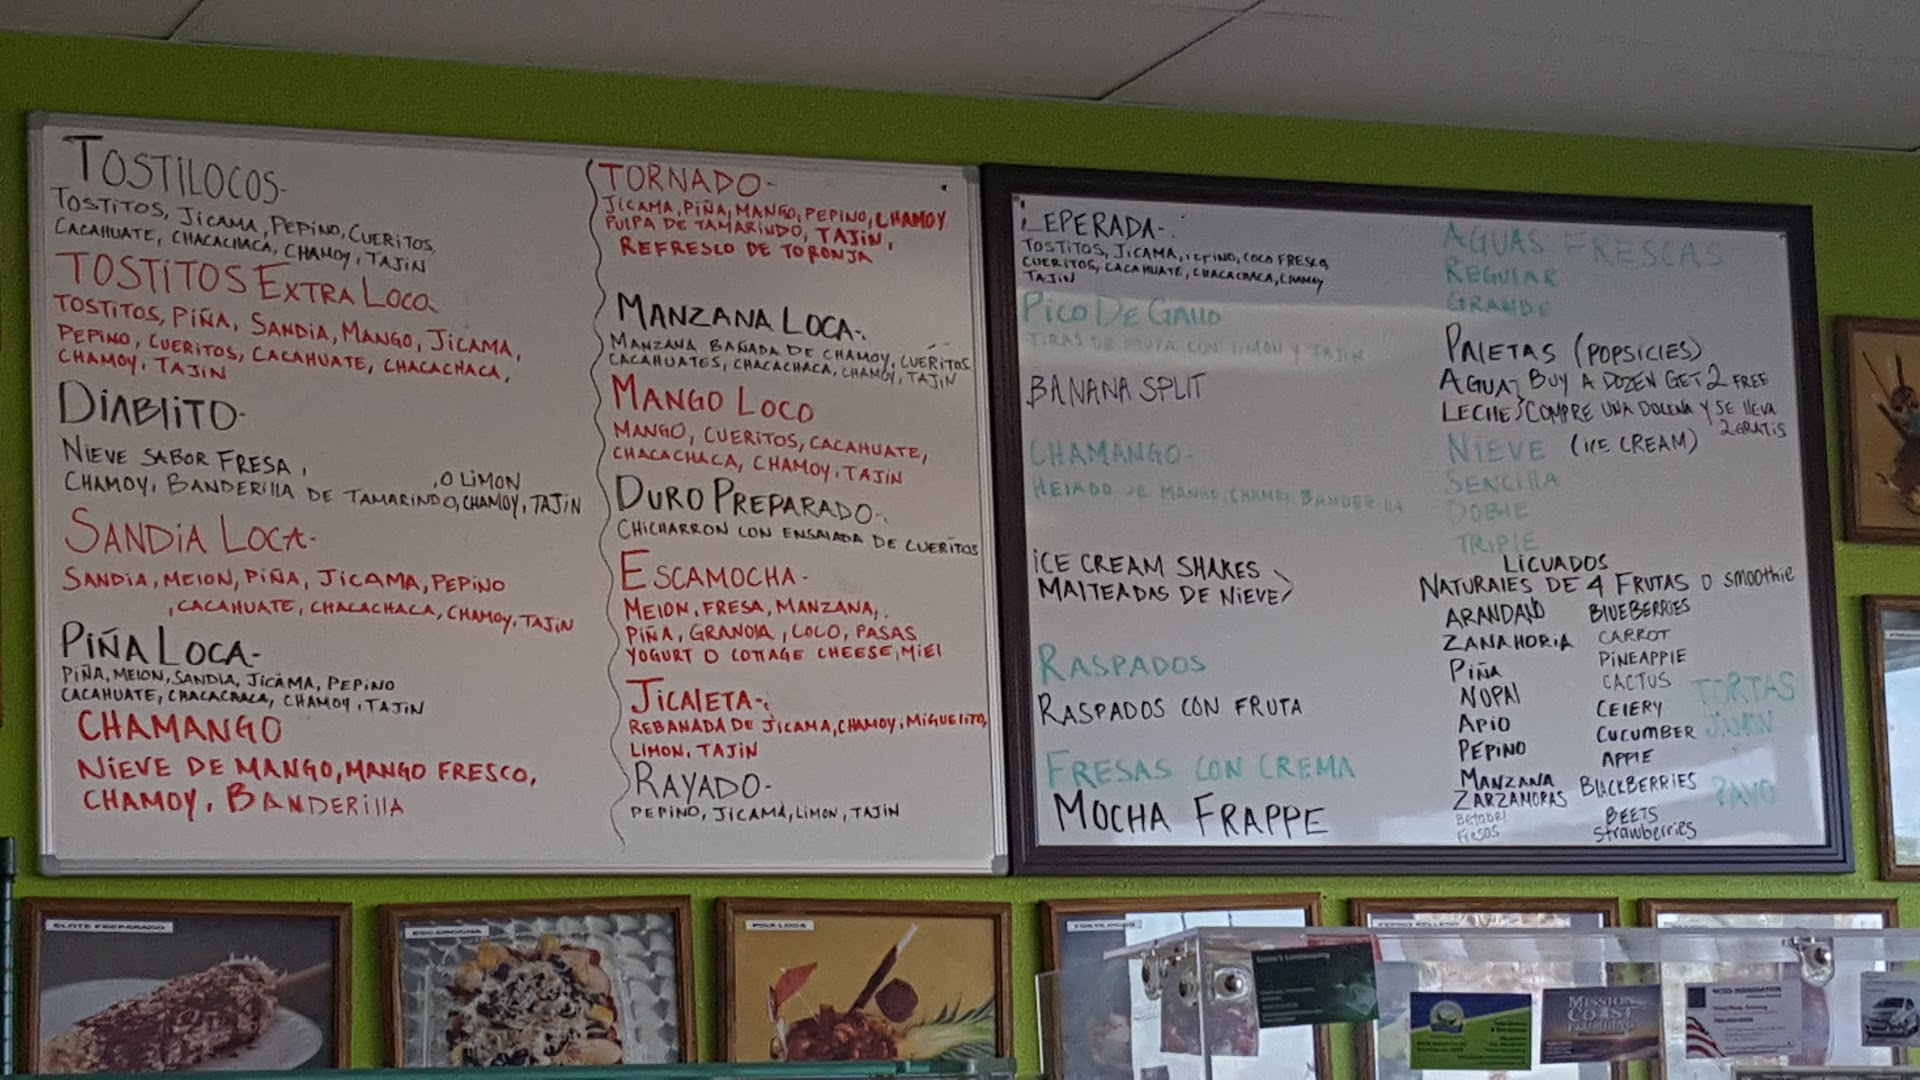 TOSTILOCOS-
TOSTITOS, JICAMA, PEPINO, CUERITOS,
CACAHUATE, CHACACHACA, CHAMOY, TAJIN
TOSTITOS EXTRA LOCO.
TOSTITOS, PIÑA, SANDIA, MANGO, JICAMA,
PEPINO, CUERITOS, CACAHUATE, CHACACHACA,
CHAMOY, TAJIN
DIABLITO-
NIEVE SABOR FRESA, , O LIMON
CHAMOY, BANDERILLA DE TAMARINDO, CHAMOY, TAJIN
SANDIA LOCA-
SANDIA, MELON, PIÑA, JICAMA, PEPINO
, CACAHUATE, CHACACHACA, CHAMOY, TAJIN
PIÑA LOCA-
PIÑA, MELON, SANDIA, JICAMA, PEPINO
CACAHUATE, CHACACHACA, CHAMOY, TAJIN
CHAMANGO
NIEVE DE MANGO, MANGO FRESCO,
CHAMOY, BANDERILLA
TORNADO-
JICAMA, PIÑA, MANGO, PEPINO, CHAMOY
PULPA DE TAMARINDO, TAJIN,
REFRESCO DE TORONJA
MANZANA LOCA-
MANZANA BAÑADA DE CHAMOY, CUERITOS
CACAHUATES, CHACACHACA, CHAMOY, TAJIN
MANGO LOCO
MANGO, CUERITOS, CACAHUATE,
CHACACHACA, CHAMOY, TAJIN
DURO PREPARADO-
CHICHARRON CON ENSALADA DE CUERITOS
ESCAMOCHA-
MELON, FRESA, MANZANA,
PIÑA, GRANOLA, COCO, PASAS
YOGURT O COTTAGE CHEESE, MIEL
JICALETA-
REBANADA DE JICAMA, CHAMOY, MIGUELITO,
LIMON, TAJIN
RAYADO-
PEPINO, JICAMA, LIMON, TAJIN
LEPERADA-
TOSTITOS, JICAMA, PEPINO, COCO FRESCO,
CUERITOS, CACAHUATE, CHACACHACA, CHAMOY
TAJIN
PICO DE GALLO
TIRAS DE FRUTA CON LIMON Y TAJIN
BANANA SPLIT
CHAMANGO-
HELADO DE MANGO, CHAMOY, BANDERILLA
ICE CREAM SHAKES
MALTEADAS DE NIEVE
RASPADOS
RASPADOS CON FRUTA
FRESAS CON CREMA
MOCHA FRAPPE
AGUAS FRESCAS
REGULAR
GRANDE
PALETAS (POPSICLES)
AGUA} BUY A DOZEN GET 2 FREE
LECHE} COMPRE UNA DOCENA Y SE LLEVA
2 GRATIS
NIEVE (ICE CREAM)
SENCILLA
DOBLE
TRIPLE
LICUADOS
NATURALES DE 4 FRUTAS O smoothie
ARANDANO BLUEBERRIES
ZANAHORIA CARROT
PIÑA PINEAPPLE
NOPAL CACTUS
APIO CELERY
PEPINO CUCUMBER
MANZANA APPLE
ZARZAMORAS BLACKBERRIES
Betabel BEETS
Fresas Strawberries
TORTAS
JAMON
PAVO
ELOTE PREPARADO
ESCAMOCHA
PIÑA LOCA
MISSION
COAST
PLUMBING